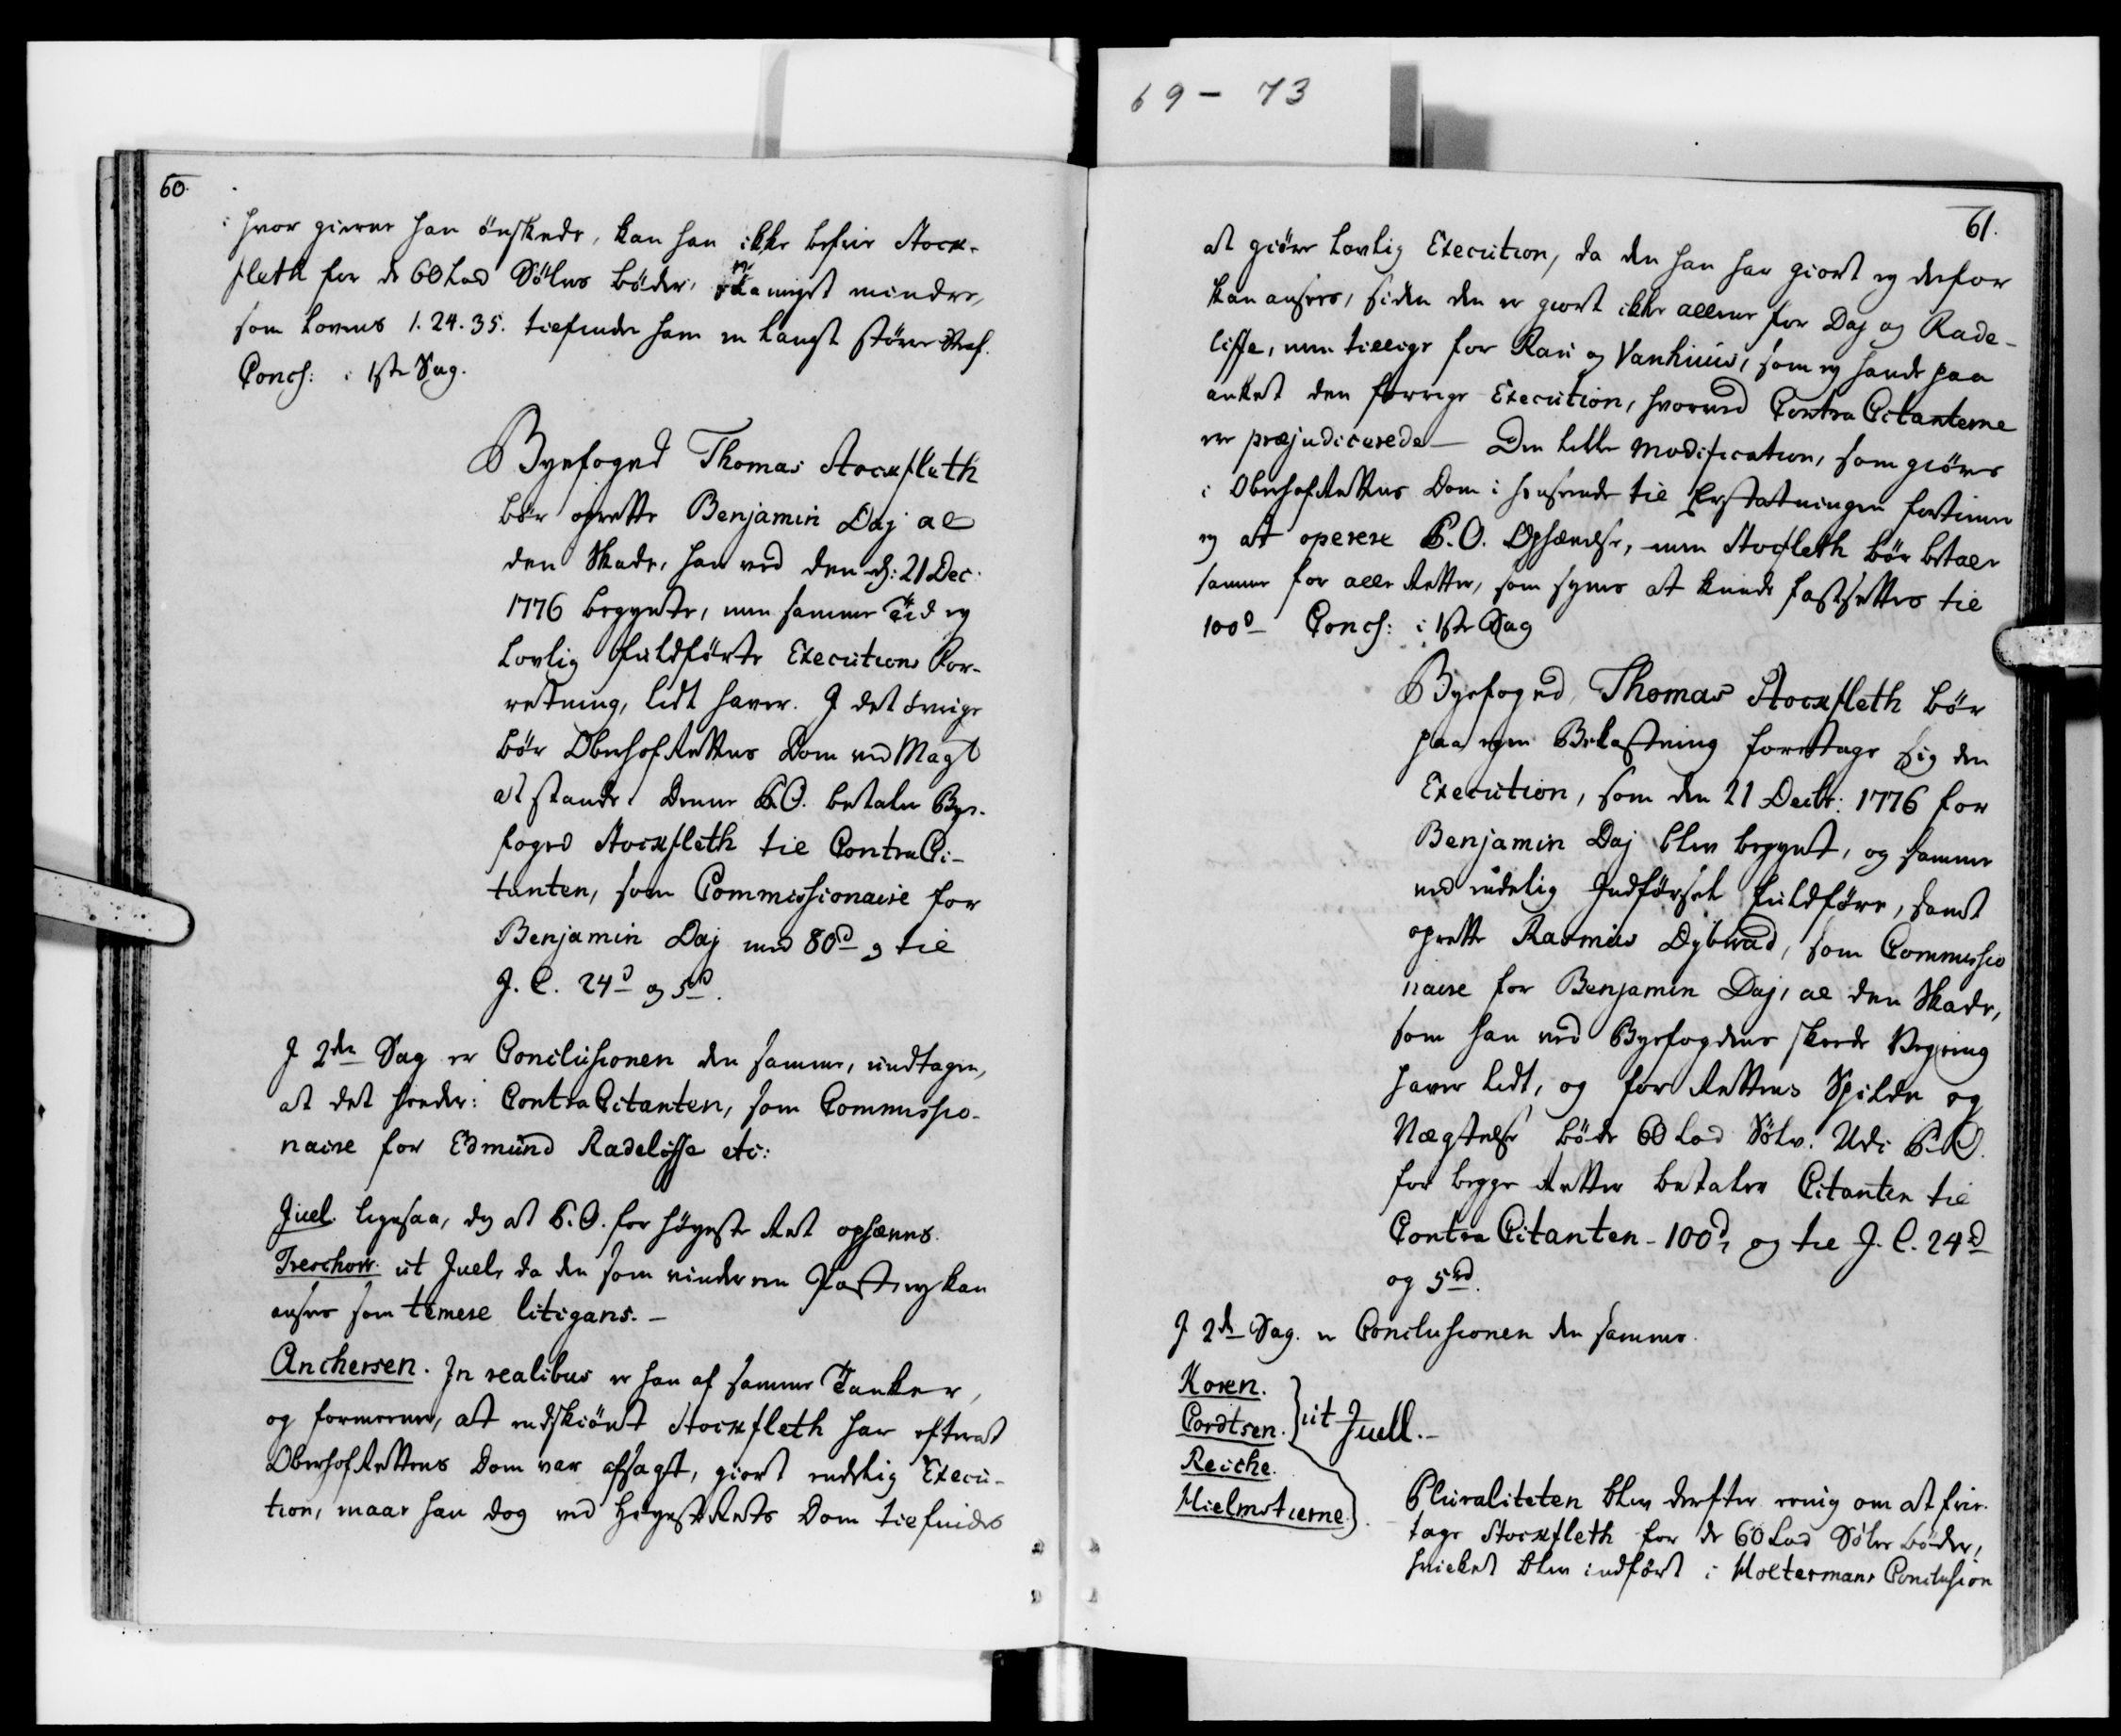 69 - 73
60.
hvor gierne han ønskede, kan han ikke befrie Stock-
fleth for de 60 Lod Sølvs bøder, saameget mindre,
som Lovens 1. 24. 35. tiefinder ham en langt større Straf.
Concl: i 1ste Sag.
Byefoged Thomas Stockfleth
bør oprette Benjamin Daj al
den Skade, han ved den d: 21 Dec:
1776 begyndte, men samme Tid ej
lovlig fuldførte Executions For-
retning, lidt haver. I det øvrige
bør OberhofRettens Dom ved Magt
at stande. Denne S.O. betaler Bye-
foged Stockfleth til ContraCi-
tanten, som Commissionaire for
Benjamin Daj med 80d og til
J. C. 24d og 5d.
J 2den Sag er Conclusionen den samme, undtagen,
at det heeder: ContraCitanten, som Commissio-
naire for Edmund Radeliffe etc:
Juel. ligesaa, dog at S.O. for Høyeste Ret ophæves.
Treschow. ut Juel, da den som vinder een Post ej kan
ansees som temere litigans. -
Anchersen. In realibus er han af samme Tanker,
og formeener, at endskiønt Stockfleth har efterat
OberhofRettens Dom var afsagt, giort endelig Execu-
tion, maae han dog ved HøyesteRets Dom tilfindes
61.
at giøre lovlig Execution, da den han har giort ej derfor
kan ansees, siden den er giort ikke allene for Daj og Rade-
liffe, men tillige for Rau og Vanhuus, som ej havde paa
anket den forrige Execution, hvorved ContraCitanterne
er præjudicerede - Den lille Modification, som giøres
i OberhofRettens Dom i henseende til Erstatningen fortiener
ej at operere S.O. Ophævelse, men Stocfleth bør betale
samme for alle Retter, som synes at kunde fastsettes til
100d - Concl: i 1ste Sag
Byefoged Thomas Stockfleth bør
paa egen Bekostning foretage sig den
Execution, som den 21 Decbr: 1776 for
Benjamin Daj blev begyndt, og samme
ved endelig Indførsel fuldføre, samt
oprette Rasmus Dybvad, som Commissio
naire for Benjamin Daj, al den Skade,
som han ved Byefogdens skeede Vegring
haver lidt, og for Rettens Spilde og
Nægtelse bøde 60 Lod Sølv. Udi S.O.
for begge Retter betaler Citanten til
ContraCitanten - 100d, og til J. C. 24d
og 5d.
J 2den Sag. er Conclusionen den samme.
Koren.
Cordtsen. } ut Juell. -
Reiche.
Hielmstierne.
Pluraliteten blev derefter eenig om at frie-
tage Stockfleth for de 60 Lod Sølv bøder,
hvilket blev indført i Moltermans Conclusion